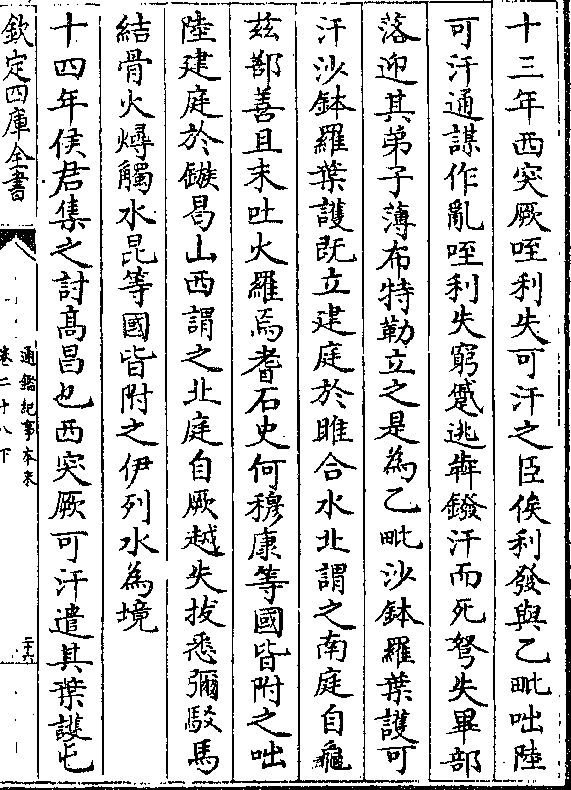 十三年西突厥咥利失可汗之臣俟利發與乙毗咄陸
可汗通謀作亂咥利失窮蹙逃犇鏺汗而死弩失畢部
落迎其弟子薄布特勒立之是為乙毗沙鉢羅葉護可
汗沙鉢羅葉護既立建庭於雎合水北謂之南庭自龜
兹鄯善且末吐火羅焉耆石史何穆康等國皆附之咄
陸建庭於鏃曷山西謂之北庭自厥越失拔悉彌駮馬
結骨火燖觸水昆等國皆附之伊列水為境
十四年侯君集之討髙昌也西突厥可汗遣其葉護屯
欽定四庫全書
通鑑紀事本末
卷二十八下
二十六